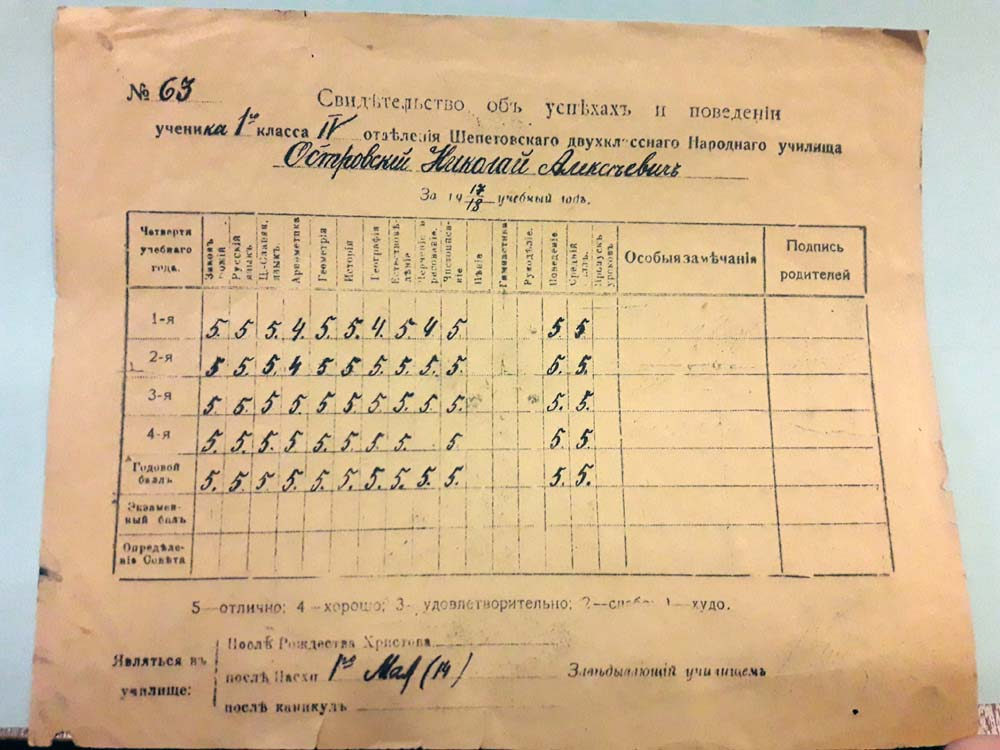 № 63
Свидѣтельство объ успѣхахъ и поведеніи
ученика 1го класса IV отдѣленія Шепетовскаго двухкласснаго Народнаго училища
Островскій Николай Алексѣевичъ
За 19 17/18 учебный годъ.
Четверти учебнаго года. Законъ Божій Русскій языкъ Ц.-Славян. языкъ Ариѳметика Геометрія Исторія Географія Естествовѣдѣніе Черченіе и рисованіе. Чистописаніе Пѣніе Гимнастика Рукодѣліе. Поведеніе Средній баллъ. Пропускъ уроковъ Особыя замѣчанія Подпись родителей
1-я 5. 5 5. 4. 5. 5. 4. 5 4 5 5. 5.
2-я 5 5. 5. 4 5 5. 5. 5. 5. 5. 5. 5.
3-я 5. 5. 5 5. 5 5 5. 5. 5. 5. 5. 5.
4-я 5. 5. 5. 5 5. 5. 5. 5. 5 5. 5
Годовой баллъ 5. 5. 5 5. 5. 5. 5. 5. 5. 5. 5. 5.
Экзаменный балъ
Опредѣленіе Совѣта
5—отлично; 4—хорошо; 3—удовлетворительно; 2—слабо; 1—худо.
Являться въ училище:
Послѣ Рождества Христова
послѣ Пасхи 1го Мая (14) Завѣдывающій училищемъ
послѣ каникулъ